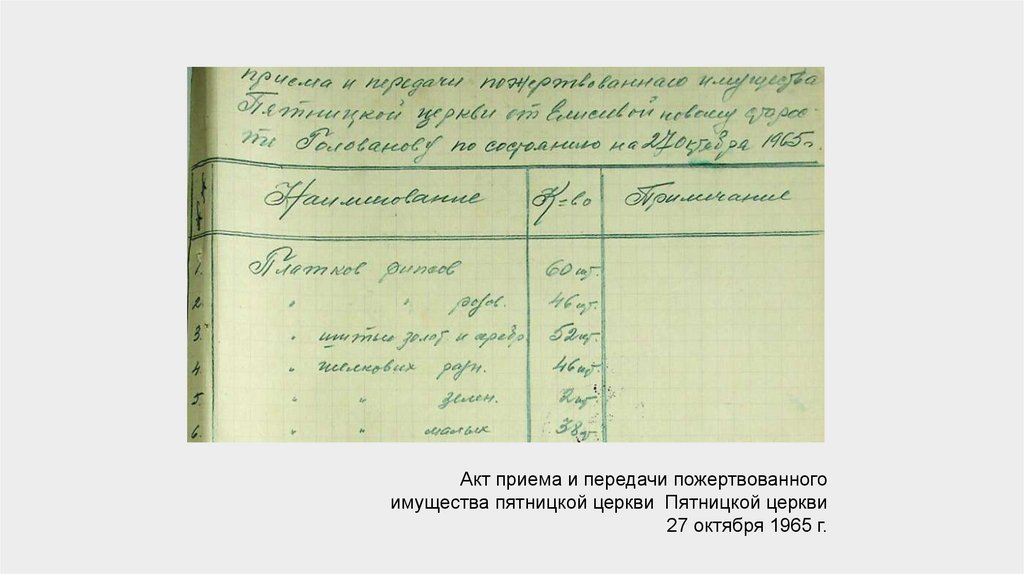 приема и передачи пожертвованнаго имущества
Пятницкой церкви от Елисивой новому старос-
ти Голованову по состоянию на 27 октября 1965 г.
Наименование К=во Примечание
1. Платков рипсов 60 шт.
2. " " розов. 46 шт.
3. " шитью золот. и серебр. 52 шт.
4. " шелкових разн. 46 шт.
5. " " зелен. 2 шт.
6. " " малых 38 шт
Акт приема и передачи пожертвованного
имущества пятницкой церкви Пятницкой церкви
27 октября 1965 г.